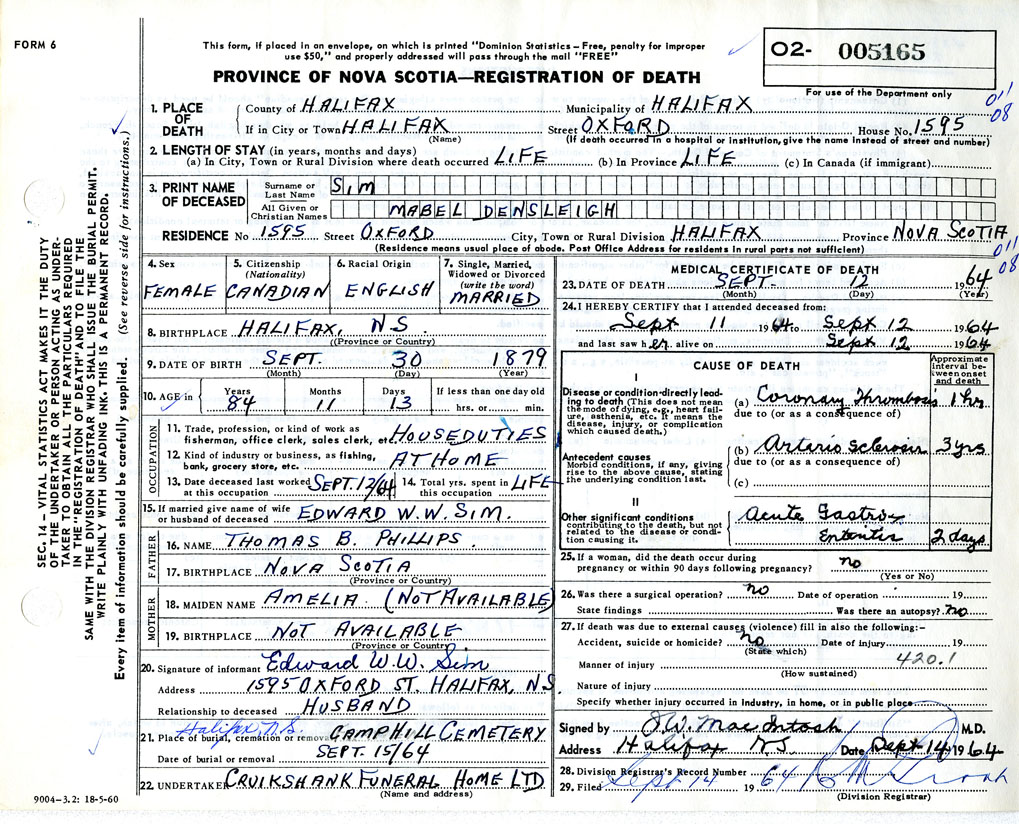 FORM 6
This form, if placed in an envelope, on which is printed "Dominion Statistics – Free, penalty for improper
use $50," and properly addressed will pass through the mail "FREE"
PROVINCE OF NOVA SCOTIA—REGISTRATION OF DEATH
O2- 005165
For use of the Department only
011
08
1. PLACE OF DEATH
County of HALIFAX Municipality of HALIFAX
If in City or Town HALIFAX Street OXFORD House No. 1595
(Name) (If death occurred in a hospital or institution, give the name instead of street and number)
2. LENGTH OF STAY (in years, months and days)
(a) In City, Town or Rural Division where death occurred LIFE (b) In Province LIFE (c) In Canada (if immigrant)
3. PRINT NAME OF DECEASED
Surname or Last Name SIM
All Given or Christian Names MABEL DENSLEIGH
RESIDENCE No 1595 Street OXFORD City, Town or Rural Division HALIFAX Province NOVA SCOTIA
(Residence means usual place of abode. Post Office Address for residents in rural parts not sufficient)
011
08
4. Sex FEMALE
5. Citizenship (Nationality) CANADIAN
6. Racial Origin ENGLISH
7. Single, Married, Widowed or Divorced (write the word) MARRIED
8. BIRTHPLACE HALIFAX, NS.
(Province or Country)
9. DATE OF BIRTH SEPT. 30 1879
(Month) (Day) (Year)
10. AGE in Years 84 Months 11 Days 13 If less than one day old hrs. or min.
OCCUPATION
11. Trade, profession, or kind of work as
fisherman, office clerk, sales clerk, etc. HOUSEDUTIES
12. Kind of industry or business, as fishing,
bank, grocery store, etc. AT HOME
13. Date deceased last worked at this occupation SEPT. 12/64 14. Total yrs. spent in this occupation LIFE
15. If married give name of wife
or husband of deceased EDWARD W. W. SIM.
FATHER
16. NAME THOMAS B. PHILLIPS.
17. BIRTHPLACE NOVA SCOTIA
(Province or Country)
MOTHER
18. MAIDEN NAME AMELIA (NOT AVAILABLE)
19. BIRTHPLACE NOT AVAILABLE
(Province or Country)
20. Signature of informant Edward W. W. Sim
Address 1595 OXFORD ST. HALIFAX, NS
Relationship to deceased HUSBAND
Halifax, N.S.
21. Place of burial, cremation or removal CAMPHILL CEMETERY
Date of burial or removal SEPT. 15/64
22. UNDERTAKER CRUIKSHANK FUNERAL HOME LTD
(Name and address)
9004–3.2: 18-5-60
MEDICAL CERTIFICATE OF DEATH
23. DATE OF DEATH SEPT. 12 1964
(Month) (Day) (Year)
24. I HEREBY CERTIFY that I attended deceased from:
Sept 11 1964 to Sept 12 1964
and last saw her alive on Sept 12 1964
CAUSE OF DEATH
Approximate interval between onset and death
I
Disease or condition directly leading to death (This does not mean the mode of dying, e.g., heart failure, asthenia, etc. It means the disease, injury, or complication which caused death.)
(a) Coronary Thrombosis 1 hr
due to (or as a consequence of)
Antecedent causes
Morbid conditions, if any, giving rise to the above cause, stating the underlying condition last.
(b) Arterio sclerosis 3 yrs
due to (or as a consequence of)
(c)
II
Other significant conditions
contributing to the death, but not related to the disease or condition causing it.
Acute Gastro
Enteritis 2 days
25. If a woman, did the death occur during
pregnancy or within 90 days following pregnancy? no
(Yes or No)
26. Was there a surgical operation? no Date of operation 19
State findings Was there an autopsy? no
27. If death was due to external causes (violence) fill in also the following:–
Accident, suicide or homicide? no Date of injury 19
(State which)
Manner of injury 420.1
(How sustained)
Nature of injury
Specify whether injury occurred in industry, in home, or in public place
Signed by MacIntosh M.D.
Address Halifax N.S. Date Sept 14 1964
28. Division Registrar's Record Number
29. Filed Sept 14 1964
(Division Registrar)
SEC. 14 – VITAL STATISTICS ACT MAKES IT THE DUTY
OF THE UNDERTAKER OR PERSON ACTING AS UNDER-
TAKER TO OBTAIN ALL THE PARTICULARS REQUIRED
IN THE "REGISTRATION OF DEATH" AND TO FILE THE
SAME WITH THE DIVISION REGISTRAR WHO SHALL ISSUE THE BURIAL PERMIT.
WRITE PLAINLY WITH UNFADING INK. THIS IS A PERMANENT RECORD.
Every item of information should be carefully supplied. (See reverse side for instructions.)